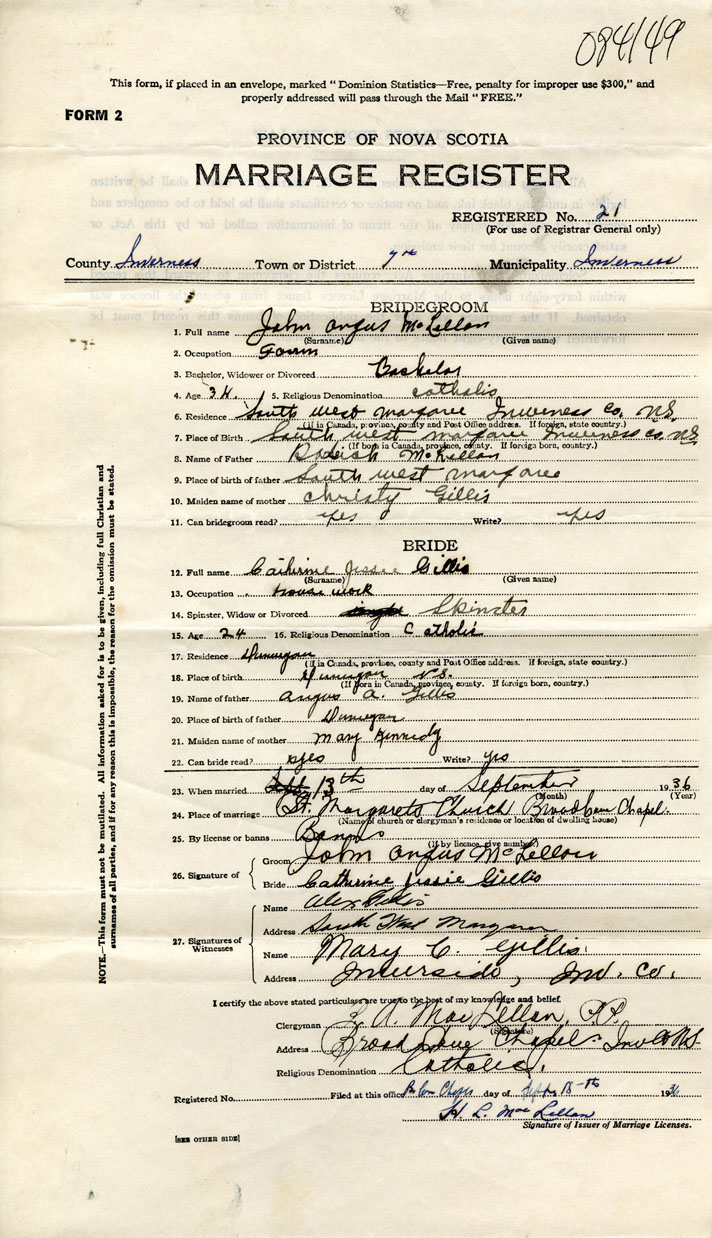 084149
This form, if placed in an envelope, marked "Dominion Statistics—Free, penalty for improper use $300," and
properly addressed will pass through the Mail "FREE."
FORM 2
PROVINCE OF NOVA SCOTIA
MARRIAGE REGISTER
REGISTERED No. 21
(For use of Registrar General only)
County Inverness Town or District 7th Municipality Inverness
BRIDEGROOM
1. Full name John Angus McLellan
(Surname) (Given name)
2. Occupation Farm
3. Bachelor, Widower or Divorced Bachelor
4. Age 34 5. Religious Denomination Catholic
6. Residence South west margaree Inverness Co. N.S.
(If in Canada, province, county and Post Office address. If foreign, state country.)
7. Place of Birth South west margaree Inverness Co. N.S
(If born in Canada, province, county. If foreign born, country.)
8. Name of Father McLellan
9. Place of birth of father South west margaree
10. Maiden name of mother Christy Gillis
11. Can bridegroom read? yes Write? yes
BRIDE
12. Full name Catherine Jessie Gillis
(Surname) (Given name)
13. Occupation House work
14. Spinster, Widow or Divorced single Spinster
15. Age 24 16. Religious Denomination Catholic
17. Residence Dunvegan
(If in Canada, province, county and Post Office address. If foreign, state country.)
18. Place of birth Dunvegan N.S.
(If born in Canada, province, county. If foreign born, country.)
19. Name of father Angus A. Gillis
20. Place of birth of father Dunvegan
21. Maiden name of mother Mary Kennedy
22. Can bride read? yes Write? yes
23. When married Sept 13th day of September 1936
(Month) (Year)
24. Place of marriage St. Margarets Church Broad Cove Chapel.
(Name of church or clergyman's residence or location of dwelling house)
25. By license or banns Banns
(If by licence, give number)
26. Signature of
Groom John Angus McLellan
Bride Catherine Jessie Gillis
27. Signatures of Witnesses
Name Alex Gillis
Address South West Margaree
Name Mary C. Gillis.
Address Inverside, Inv. Co.
I certify the above stated particulars are true to the best of my knowledge and belief.
Clergyman A. MacLellan, P.P.
(Signature)
Address Broad Cove Chapel Inv Co NS
Religious Denomination Catholic.
Registered No. Filed at this office day of Sept 18th 1936
H. L. MacLellan
Signature of Issuer of Marriage Licenses.
[SEE OTHER SIDE]
NOTE.—This form must not be mutilated. All information asked for is to be given, including full Christian and
surnames of all parties, and if for any reason this is impossible, the reason for the omission must be stated.